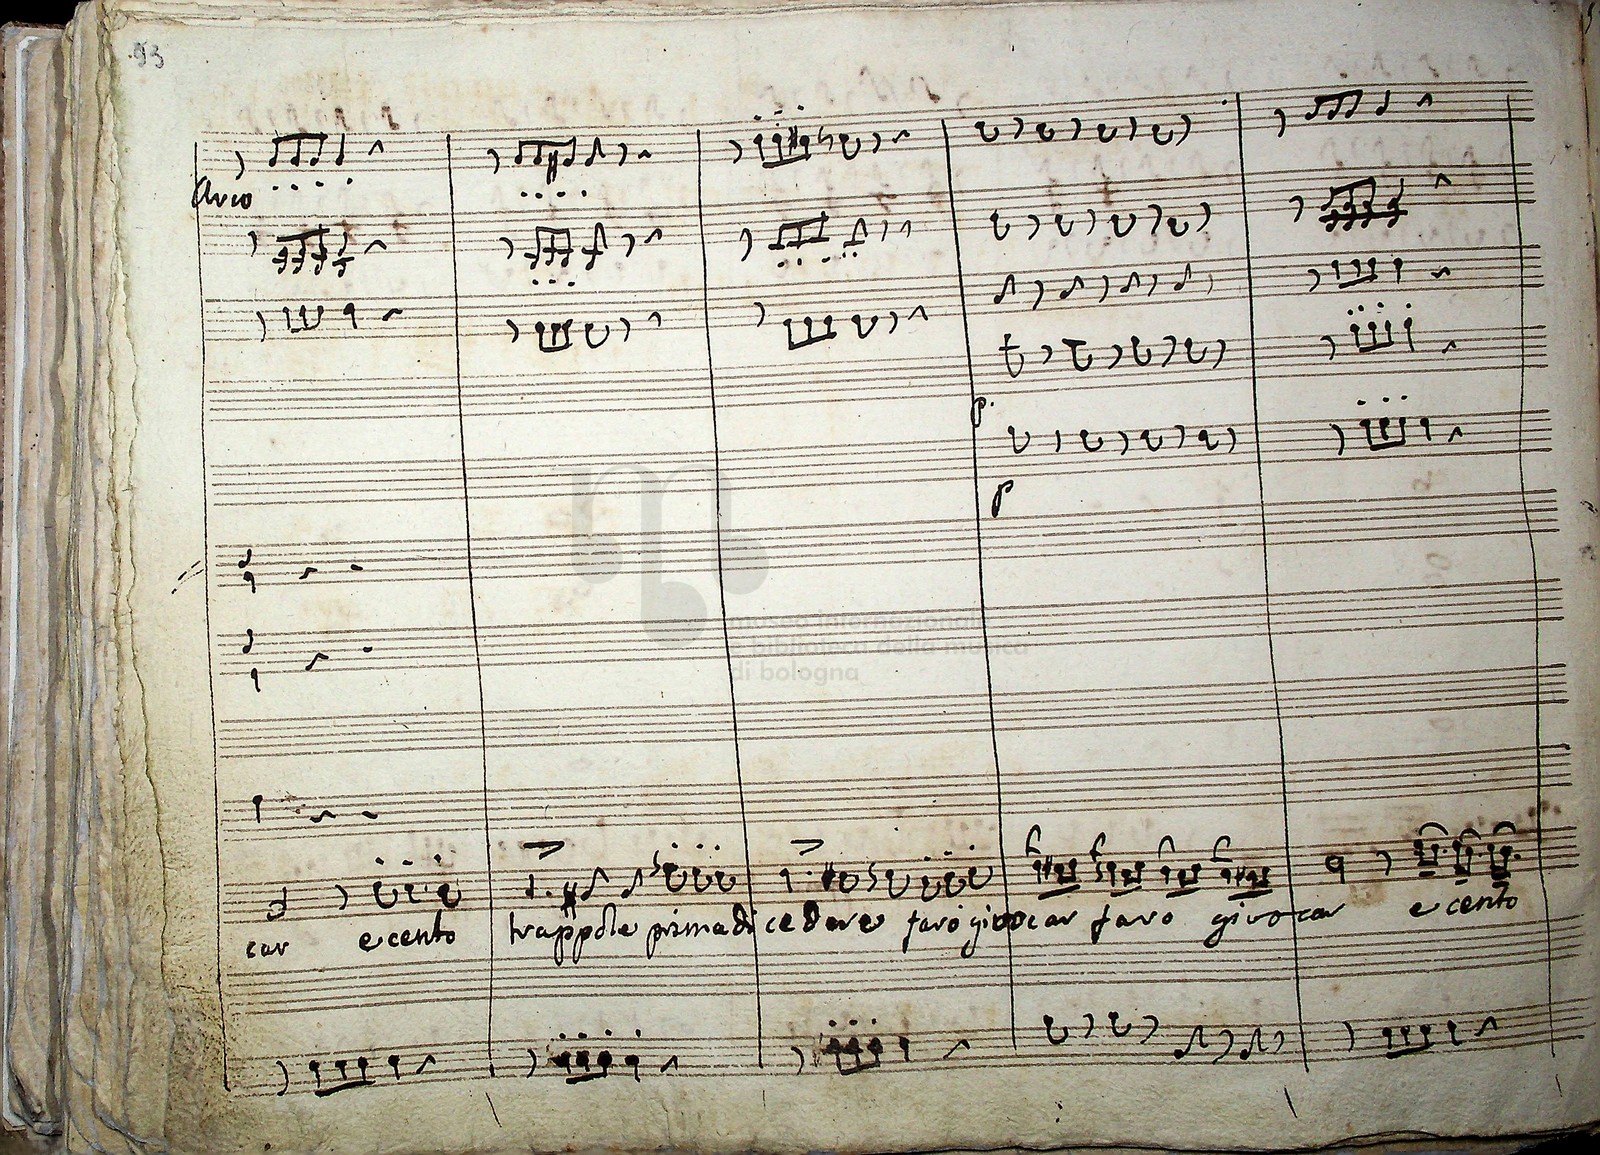 93
Arco
p.
p
museo internazionale
e biblioteca della musica
di bologna
car e cento trappole prima di cedere farò giuocar faro giuocar e cento